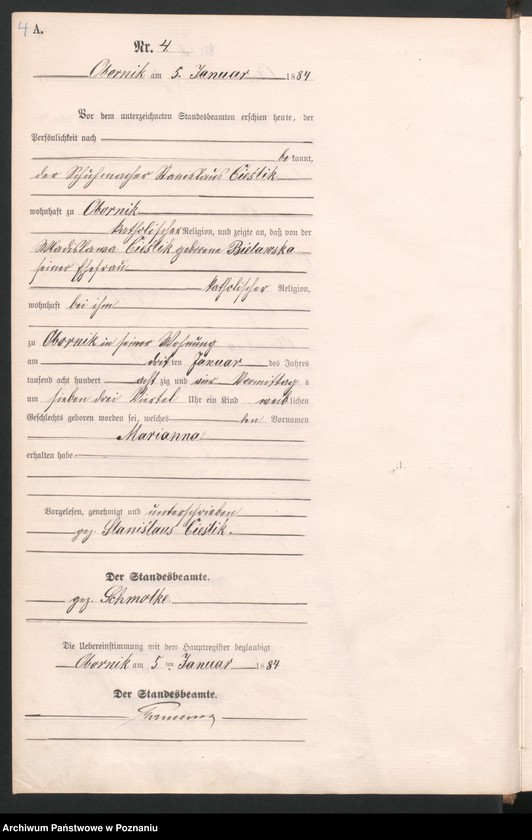 4 A.
Nr. 4
Obornik am 5. Januar 1884
Vor dem unterzeichneten Standesbeamten erschien heute, der
Persönlichkeit nach
bekannt,
der Schuhmacher Stanislaus Cieslik
wohnhaft zu Obornik
katholischer Religion, und zeigte an, daß von der
Wladislawa Cieslik geborene Bielawska
seiner Ehefrau
katholischer Religion,
wohnhaft bei ihm
zu Obornik in seiner Wohnung
am dritten Januar des Jahres
tausend acht hundert acht zig und vier Vormittags
um sieben drei Viertel Uhr ein Kind weiblichen
Geschlechts geboren worden sei, welches den Vornamen
Marianna
erhalten habe
Vorgelesen, genehmigt und unterschrieben
gez. Stanislaus Cieslik.
Der Standesbeamte.
gez. Schmolke
Die Uebereinstimmung mit dem Hauptregister beglaubigt
Obornik am 5 ten Januar 1884
Der Standesbeamte.
Archiwum Państwowe w Poznaniu